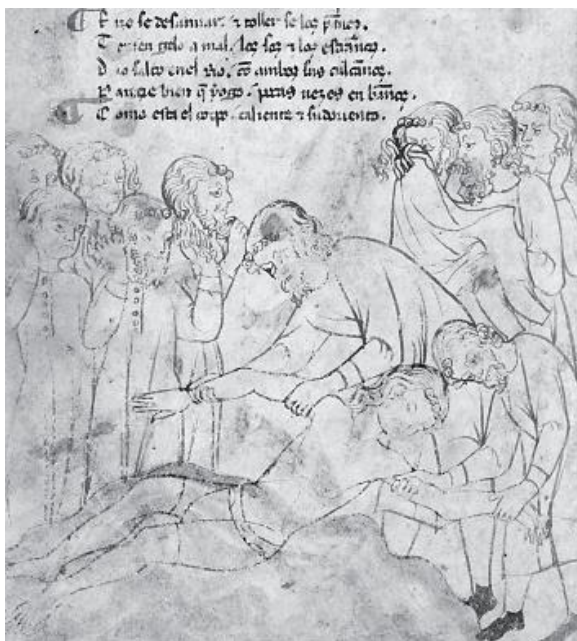 F uo se desarmar ⁊ toller se los pānos.
T gelo a mal. los sos ⁊ los estrānos.
D io salto enel Rio. cō ambos sus calcānos.
P bien q̄ yogo. pocas uezes en bānos.
C omo esta el corpo. caliente ⁊ sudorento.